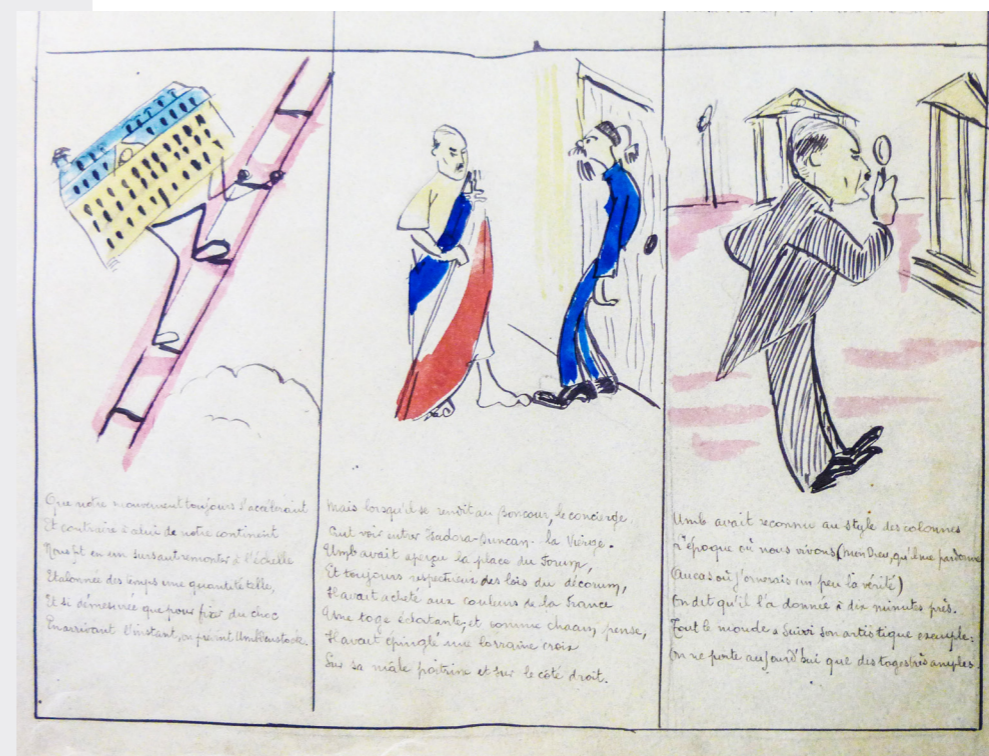 Que notre mouvement toujours s'accélérant
Et contraire à celui de notre continent
Nous fit en un sursaut remonter à l'échelle
Etalonnée des temps une quantité telle,
Et si démesurée que pour fixer du choc
En arrivant l'instant, on prévint Umbdenstock.
Mais lorsqu'il se rendit au Boncour, le concierge
Crut voir entrer Isadora-Duncan-la Vierge.
Umb avait aperçu la place du Forum,
Et toujours respectueux des lois du décorum,
Il avait acheté aux couleurs de la France
Une toge éclatante, et comme chacun, pense,
Il avait épinglé une lorraine croix
Sur sa mâle poitrine et sur le côté droit.
Umb avait reconnu au style des colonnes
L'époque où nous vivons (mon Dieu, qu'il me pardonne
Au cas où j'ornerais un peu la vérité)
On dit qu'il l'a donnée à dix minutes près.
Tout le monde a suivi son artistique exemple:
On ne porte aujourd'hui que des toges très amples.